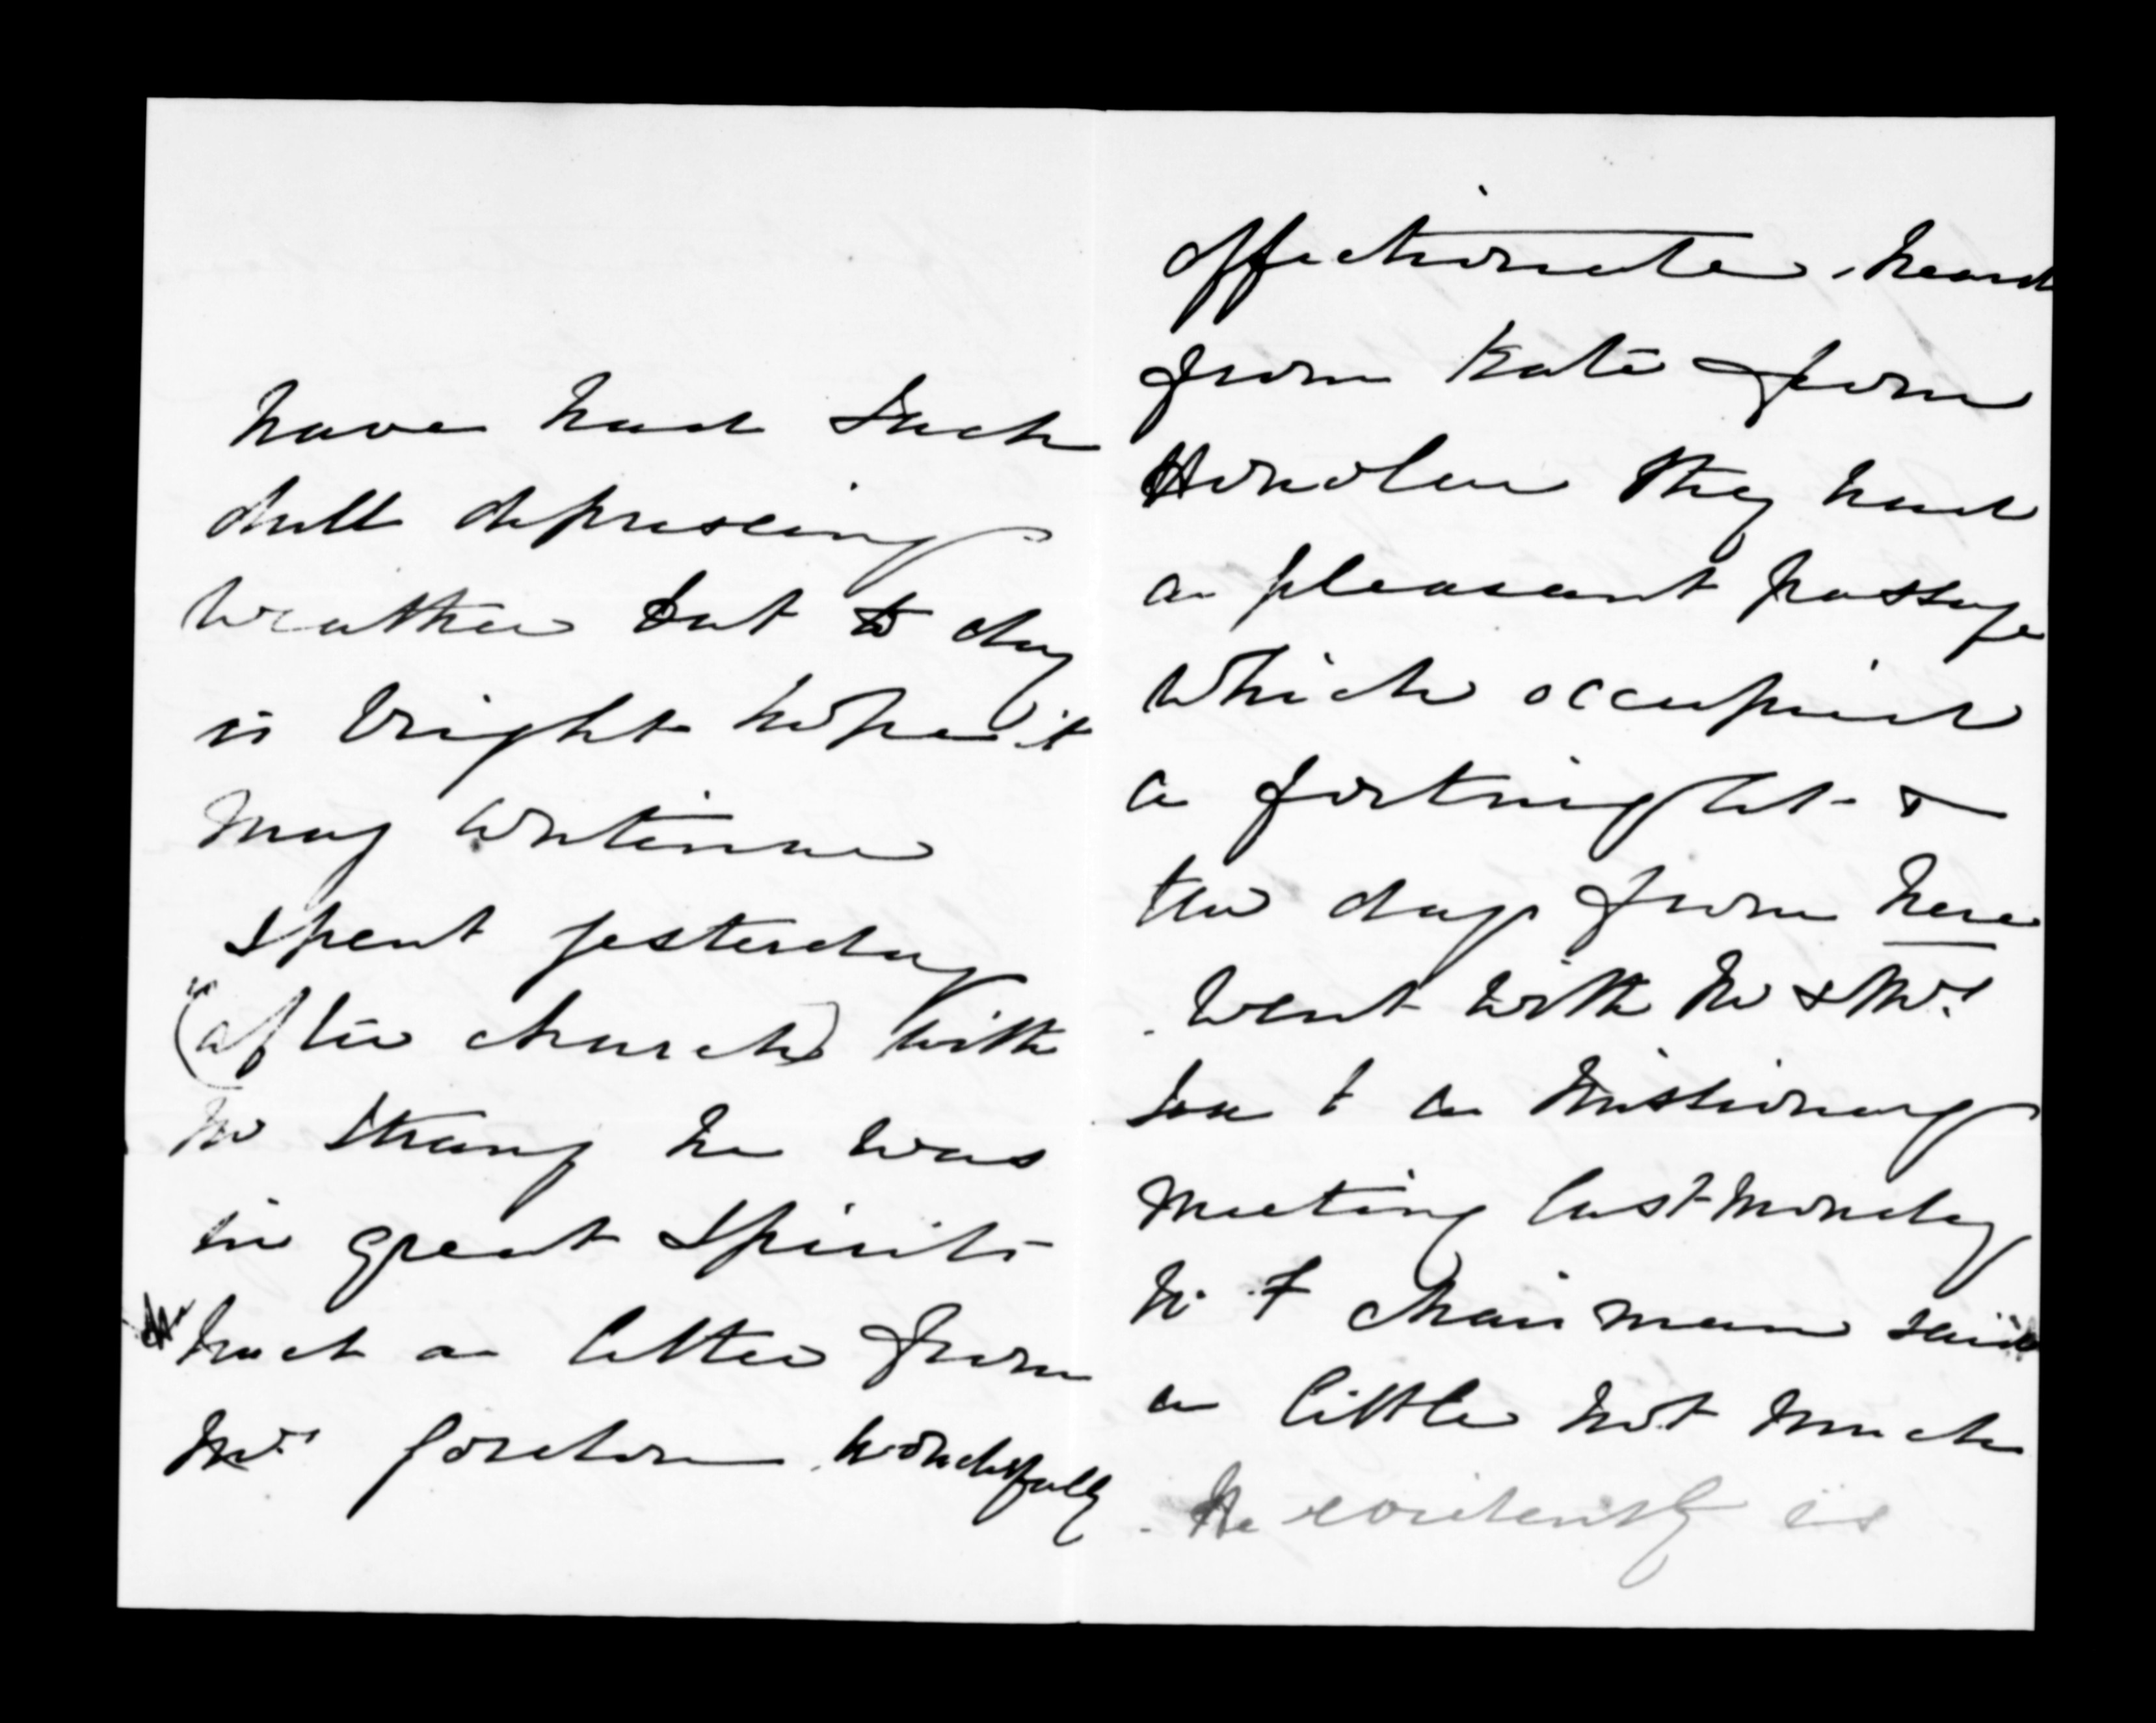 have had such
dull depressing
weather but to day
is bright hope it
may continue
spent yesterday
(after church) with
Mr Strang he was
in great spirits
had a letter from
Mrs Gordon wonderfully
affectionate. heard
from Kate from
Honolulu they had
a pleasant passage
which occupied
a fortnight &
the day from here
. went with Mr & Mrs
to a Missionary
Meeting last Monday
Mr F Chairman said
a little not much
. He evidently is